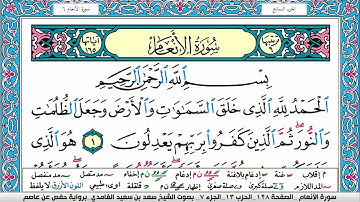 الجزء السابع
سورة الأنعام ٦
سُورَةُ الأَنْعَامِ
بِسْمِ اللَّهِ الرَّحْمَٰنِ الرَّحِيمِ
الْحَمْدُ لِلَّهِ الَّذِي خَلَقَ السَّمَاوَاتِ وَالْأَرْضَ وَجَعَلَ الظُّلُمَاتِ
وَالنُّورَ ثُمَّ الَّذِينَ كَفَرُوا بِرَبِّهِمْ يَعْدِلُونَ ١ هُوَ الَّذِي
سورة الأنعام الصفحة ١٢٨ الحزب ١٣ الجزء ٧ بصوت الشيخ سعد بن سعيد الغامدي برواية حفص عن عاصم